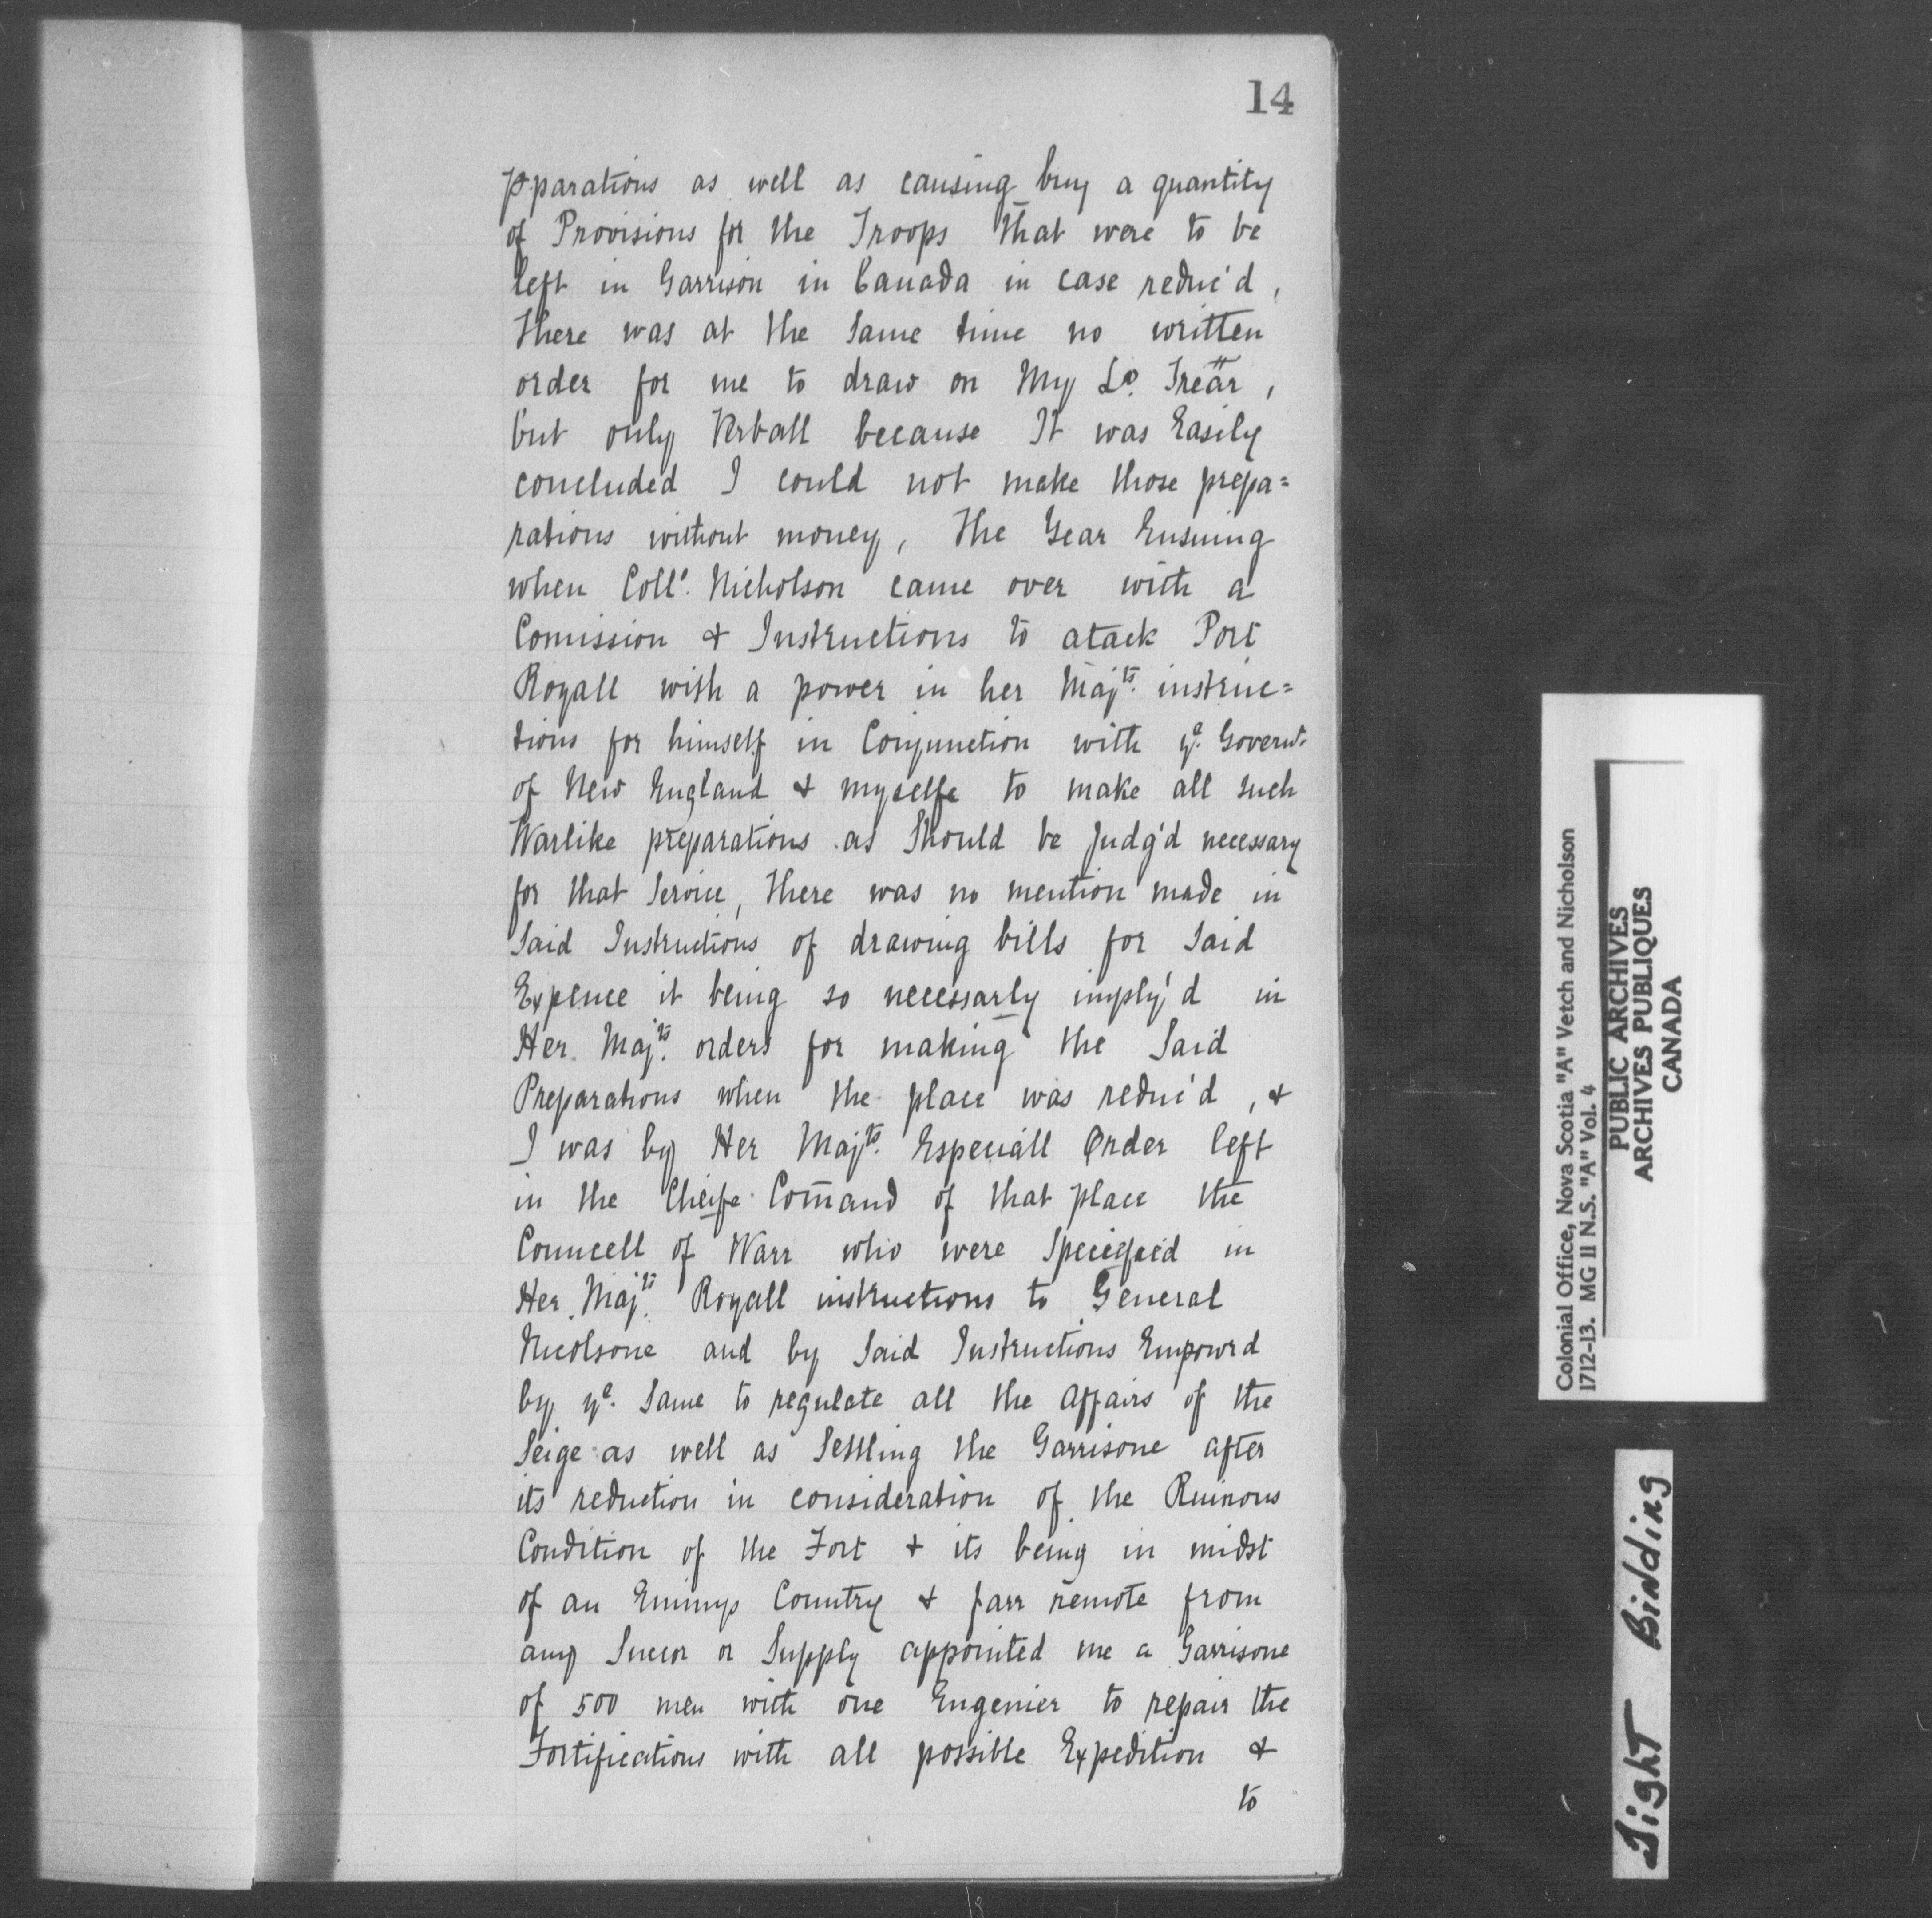 14
pparations as well as causing buy a quantity
of Provisions for the Troops that were to be
left in Garrison in Canada in case reduc'd,
there was at the Same time no written
order for me to draw on My Lo. Trear,
but only Verball because It was Easily
concluded I could not make those prepa=
rations without money, The Year Ensuing
when Coll'. Nicholson came over with a
Comission & Instructions to atack Port
Royall with a power in her Majts. instruc=
tions for himself in Conjunction with ye. Governt.
of New England & myselfe to make all such
Warlike preparations as Should be Judg'd necessary
for that Service, there was no mention made in
Said Instructions of drawing bills for Said
Expence it being so necessarly imply'd in
Her Majts. orders for making the Said
Preparations when the place was reduc'd, &
I was by Her Majts. Especiall Order left
in the Cheife Comand of that place the
Councell of Warr who were Specified in
Her Majts. Royall instructions to General
Nicolsone and by Said Instructions Empowrd
by ye. Same to regulate all the Affairs of the
Seige as well as Settling the Garrisone after
its reduction in consideration of the Ruinous
Condition of the Fort & its being in midst
of an Enimys Country & farr remote from
any Succor or Supply appointed me a Garrisone
of 500 men with one Engenier to repair the
Fortifications with all possible Expedition &
to
Colonial Office, Nova Scotia "A" Vetch and Nicholson
1712-13. MG 11 N.S. "A" Vol. 4
PUBLIC ARCHIVES
ARCHIVES PUBLIQUES
CANADA
Tight Binding